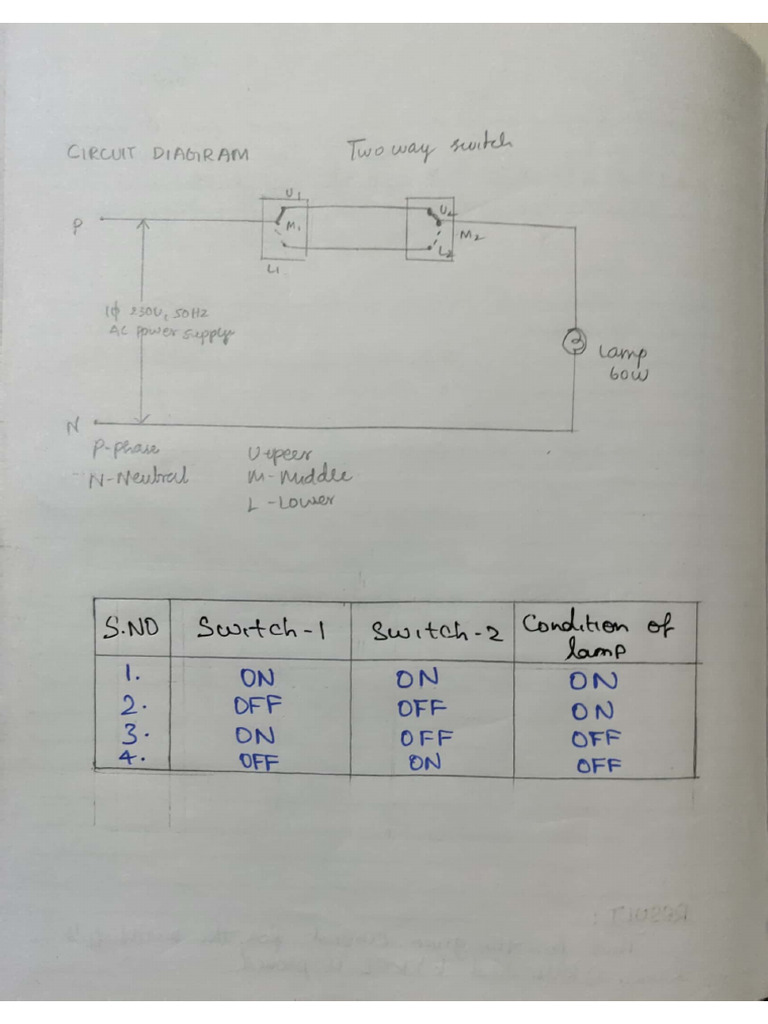 CIRCUIT DIAGRAM Two way switch
U1
U2
P
M1
M2
L2
L1
1ϕ 230V, 50HZ
AC power supply
Lamp
60W
N
P-phase
U-peer
N-Neutral
M-Middle
L-Lower
S.NO Switch-1 Switch-2 Condition of lamp
1. ON ON ON
2. OFF OFF ON
3. ON OFF OFF
4. OFF ON OFF
RESULT: